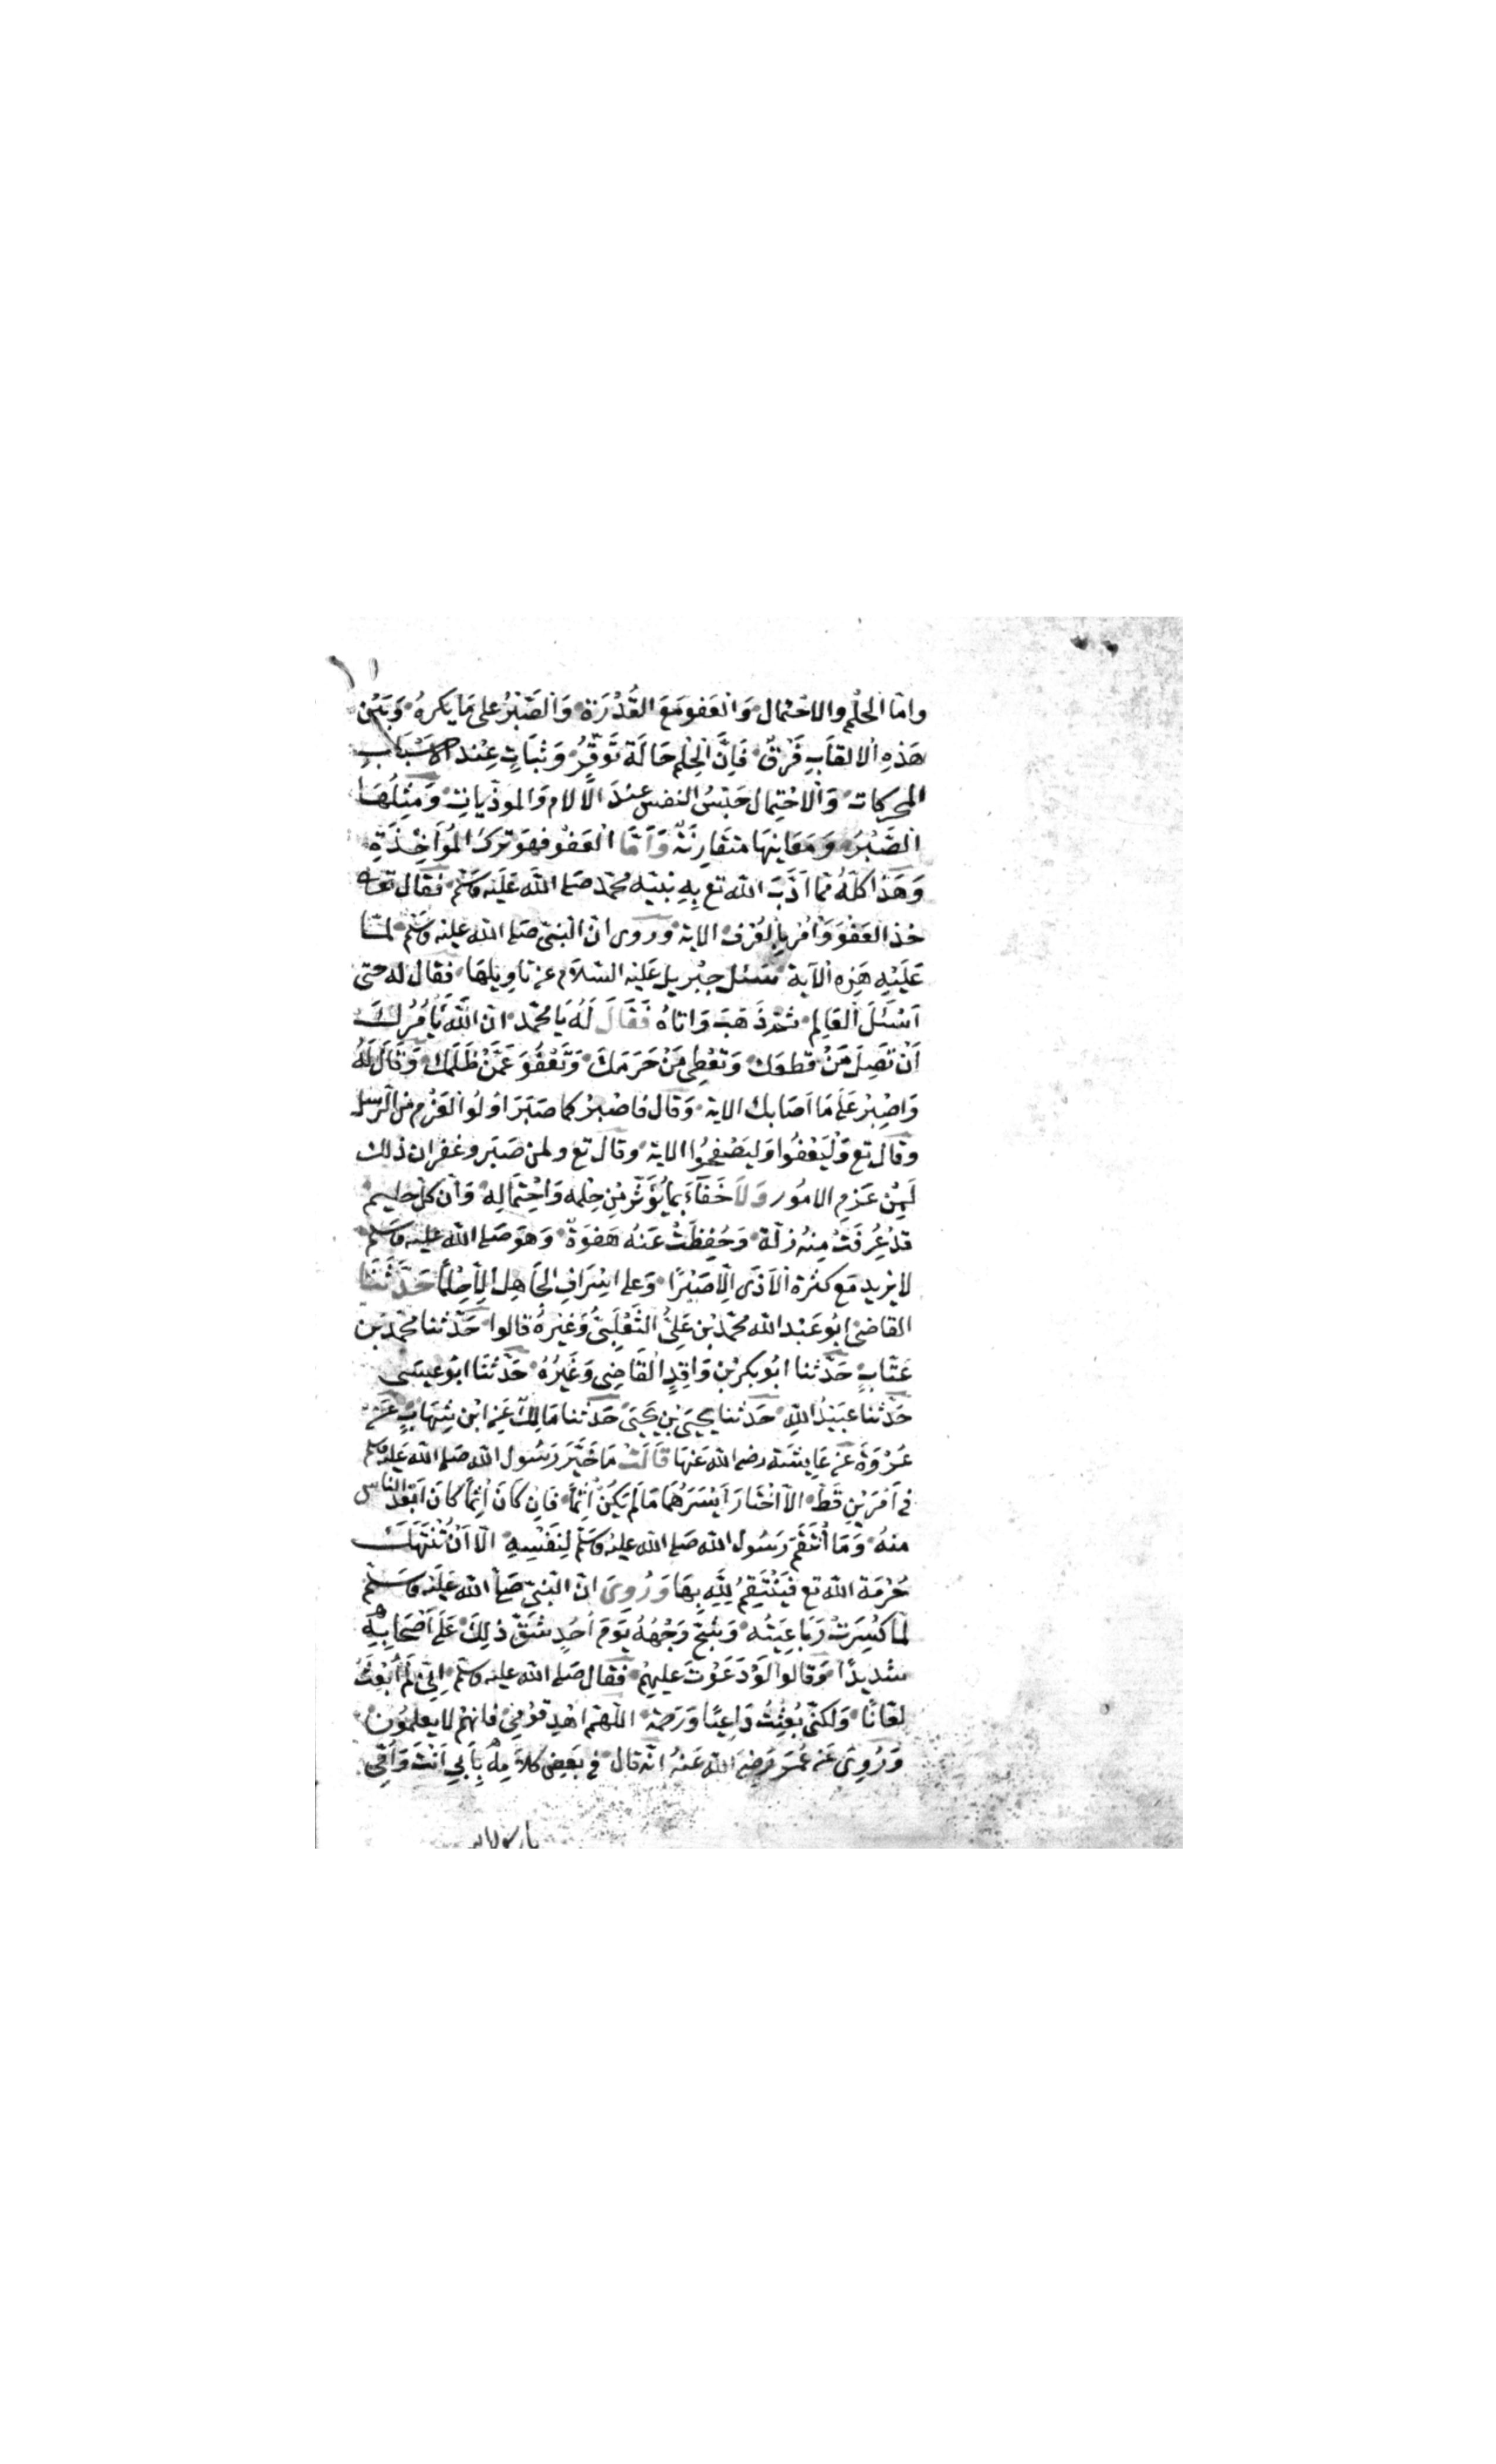 وامّا الحلم والاحتمال وَالعَفو مَعَ القُدْرَة وَالصَّبْرُ على مَا يكرهُ وَبَيْن
هَذِهِ الالقَابِ فَرْقٌ فَإنَّ الْحِلْمَ حَالَة تَوَقّرُ وَثبَاتٍ عِنْد الاَسْبَابِ
المحركات وَالاحْتِمال حَبْسُ النفس عِنْدَ الآلام وَالموذيات وَمثِلُهَا
الصَّبْرُ وَمَعَانيهَا متقَارِبَةٌ وَأمَّا العَفْو فهوَ تَركُ المُؤَاخَذَةِ
وَهَذا كلّهُ ممّا ادَّبَ الله تع بِهِ نبيّه محمّد صَلى اللهَ عَلَيْه وَسَلم فقال تعالى
خذ العَفْوَ وَأْمُرْ بِالعُرْف الاية وَرُوى انّ النبىّ صَلى الله عليه وسَلّم لمّا
عَلَيْهِ هَذِه الآية سَئل جبْريل عَليْه السّلاَم عن تاوِيلهَا فقَال له حتى
اَسْئَلَ العَالِم ثمّ ذَهَبَ وَاتاهُ فَقَالَ لَهُ يَا محمّد انّ اللهَ يَأمُرُكَ
أَنْ تَصِلَ مَنْ قطعَك وَتعْطِى مَنْ حَرَمَكَ وَتَعْفُوَ عَمَّنْ ظَلَمَكَ وَقَالَ لَهُ
وَاصْبِرْ عَلَى مَا اَصَابكَ الاية وَقَال فاصْبرْ كما صَبَرَ اُولُوا العَزْم من الرّسل
وقال تع وَلْيَعْفُوا وَليَصْفحُوا الاية وقال تع ولمن صَبَر وغفر ان ذلك
لَمِنْ عَزمِ الامُور وَلاَ خَفَآءَ بمَا يُؤثَرُ مِنْ حِلْمه وَاحْتِمَالِهِ وَأن كلّ حليم
قدْ عُرِفَتْ مِنْه زلّة وَحُفِظَتْ عَنْهُ هَفوَةٌ وَهوَ صَلى الله عليه وسلم
لا يزيد مَع كثرة الاَذَى اِلّا صَبْرًا وَعلى اسْرَافِ الجَاهِل الِّا حِلْمًا حَدَّثَنَا
القاضى ابُو عَبْد الله محمّد بْن عَليٍّ الثَعْلَبىُّ وَغيْرهُ قالوا حَدّثنا محمّد بْن
عتّابٍ حَدّثنا ابُو بكر بْن وَاقِدٍ القَاضِى وَغَيْرُهُ حَدّثَنَا ابُو عيسَى
حَدّثنا عبَيْدُ اللهِ حَدثنا يحيَى بْن يَحيَىَ حَدّثنا مَالِكٌ عَن ابْن شِهَابٍ عَن
عُرْوَةَ عَن عَايشَة رضى الله عَنهَا قَالَتْ مَا خُيَّرَ رَسُول الله صَلى الله عَليْه وسلم
فى أمْرَيْن قَطّ الاّ اخْتَارَ اَيْسَرَهُمَا مَا لَمْ يَكُنْ اِثمًا فاِن كَانَ اِثْمًا كانَ ابْعَد الناس
منهُ وَمَا انْتَقَمَ رَسُول الله صَلى الله عليه وسَلّم لِنَفْسِهِ الاّ اَنْ تُنْتَهَكَ
حُرْمَة الله تع فَيَنْتَقِمُ لِلّهِ بِهَا وَرُوِىَ انّ النبىّ صَلى الله عَليْه وَسَلم
لمَّا كُسِرَتْ رَبَاعِيَتُه وَشُجَّ وَجْهُهُ يَوْمَ أُحُدٍ شَقّ ذلِكَ عَلَى اَصْحَابِهِ
شديدًا وَقالوا لَوْ دَعَوْتَ عليهمْ فقال صَلى الله عليه وسلم اِنىّ لَمْ اُبْعَثْ
لعّانًا وَلكنّى بُعِثْتُ دَاعِيًا وَرَحمة اللهمّ اهْدِ قوْمِى فانهمْ لا يعلمُون
وَرُوِىَ عَن عُمَرَ رَضىَ الله عَنهُ انّه قال فى بَعض كلاَمِهِ بِأبي اَنْتَ وَأمّى
يا رسول الله